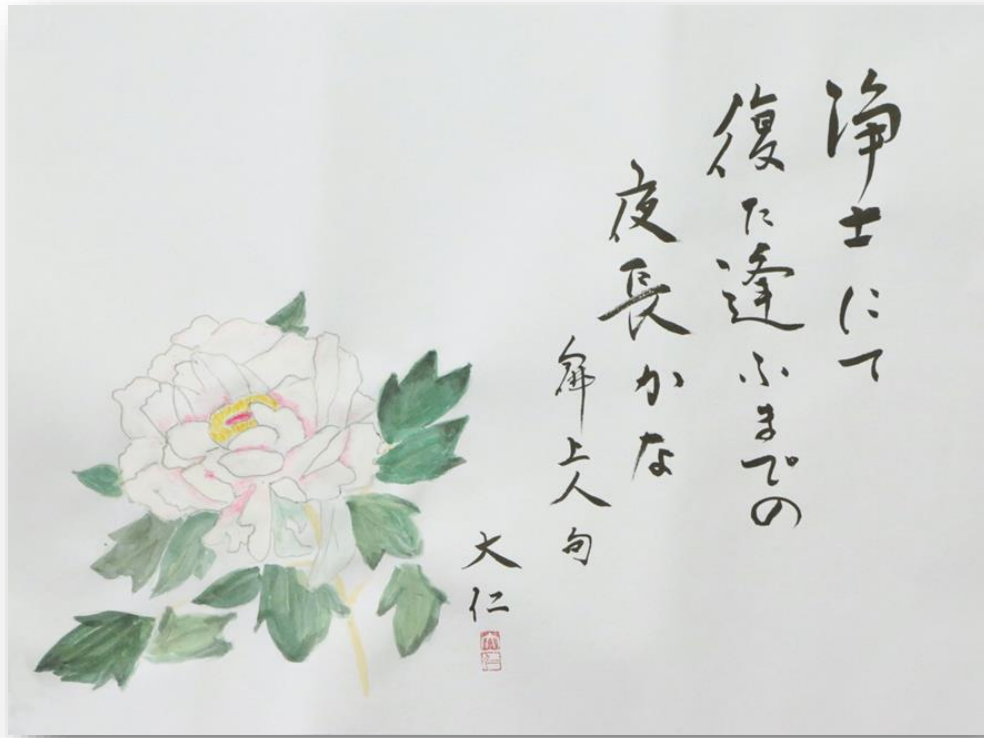 浄土にて
復た逢ふまでの
夜長かな
上人句
大仁